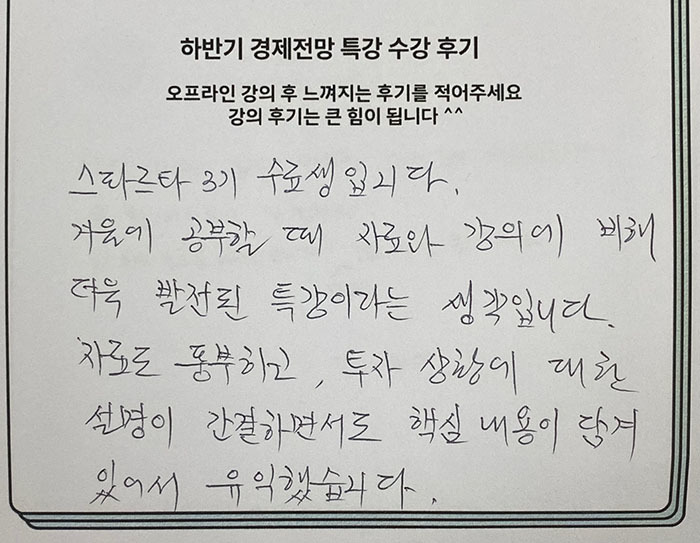 하반기 경제전망 특강 수강 후기
오프라인 강의 후 느껴지는 후기를 적어주세요
강의 후기는 큰 힘이 됩니다 ^^
스파르타 3기 수료생입니다.
겨울에 공부할 때 자료와 강의에 비해
더욱 발전된 특강이라는 생각입니다.
자료도 풍부하고, 투자 상황에 대한
설명이 간결하면서도 핵심 내용이 담겨
있어서 유익했습니다.